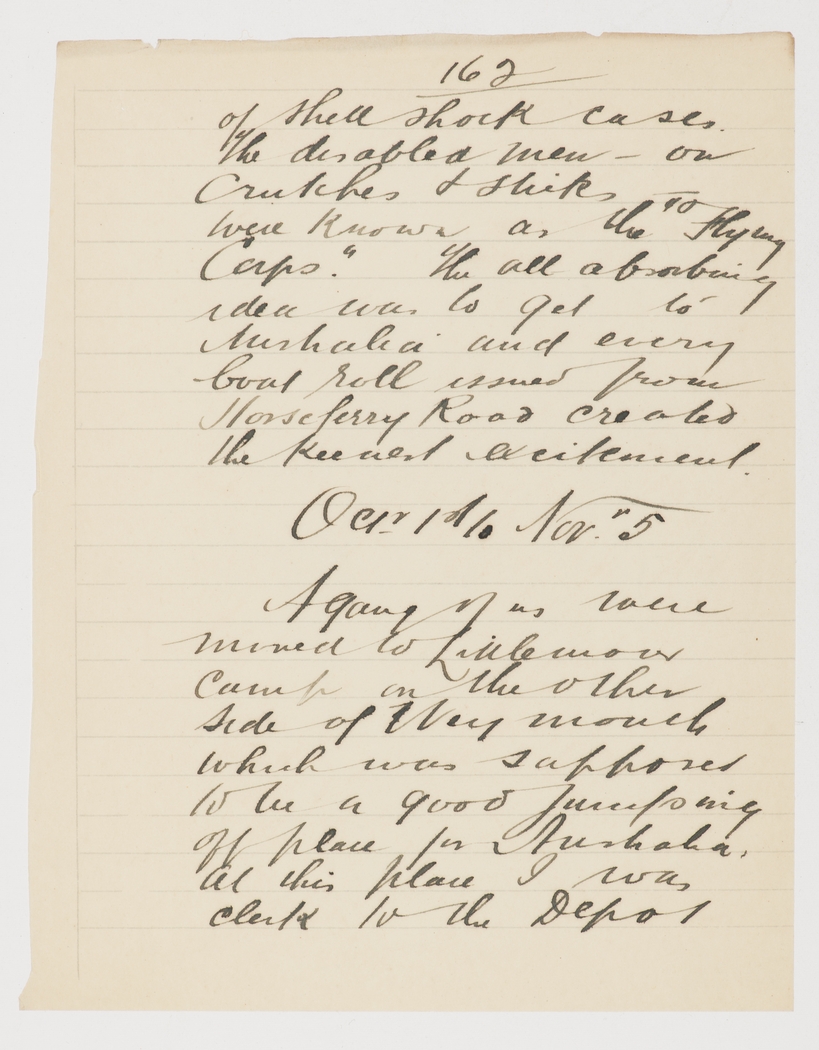 162
of shell shock cases.
The disabled men – on
Crutches & sticks –
were known as the "Flying
Corps". The all absorbing
idea was to get to
Australia and every
boat roll issued from
Horseferry Road created
the keenest excitement.
Octr 1st to Nov. 5
A gang of us were
moved to Littlemoor
camp on the other
side of Weymouth
which was supposed
to be a good jumping
off place for Australia.
At this place I was
clerk to the Depot